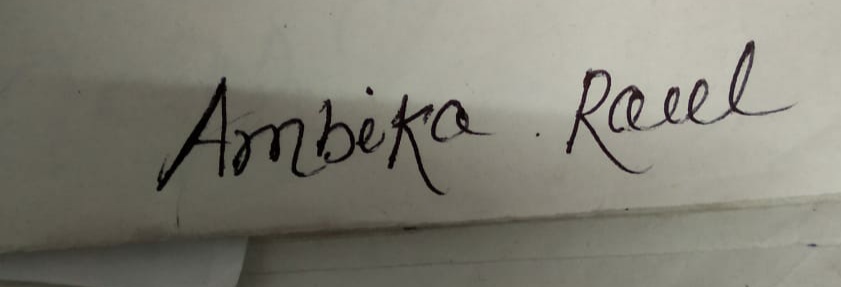 Ambika . Raul